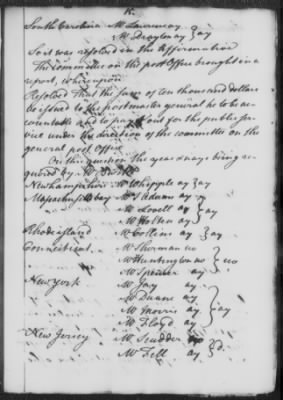 South Carolina Mr Laurens ay
Mr Drayton ay } ay
So it was resolved in the affirmative
The Committee on the post Office brought in a
report, whereupon
Resolved That the sum of ten thousand dollars
be issued to the postmaster general he to be ac-
countable and to pay it out for the public ser-
vice under the direction of the committee on the
general post office
On the question the yeas & nays being re-
quired by Mr
Newhampshire Mr Whipple ay } ay
Massachusetts bay Mr S Adams ay
Mr Lovell ay } ay
Mr Holten ay
Rhode island Mr Collins ay } ay
Connecticut Mr Sherman no
Mr Huntington no } no
Mr Spencer ay
New york Mr Jay ay
Mr Duane ay
Mr Morris ay } ay
Mr Floyd ay
New Jersey Mr Scudder no
Mr Fell ay } d.